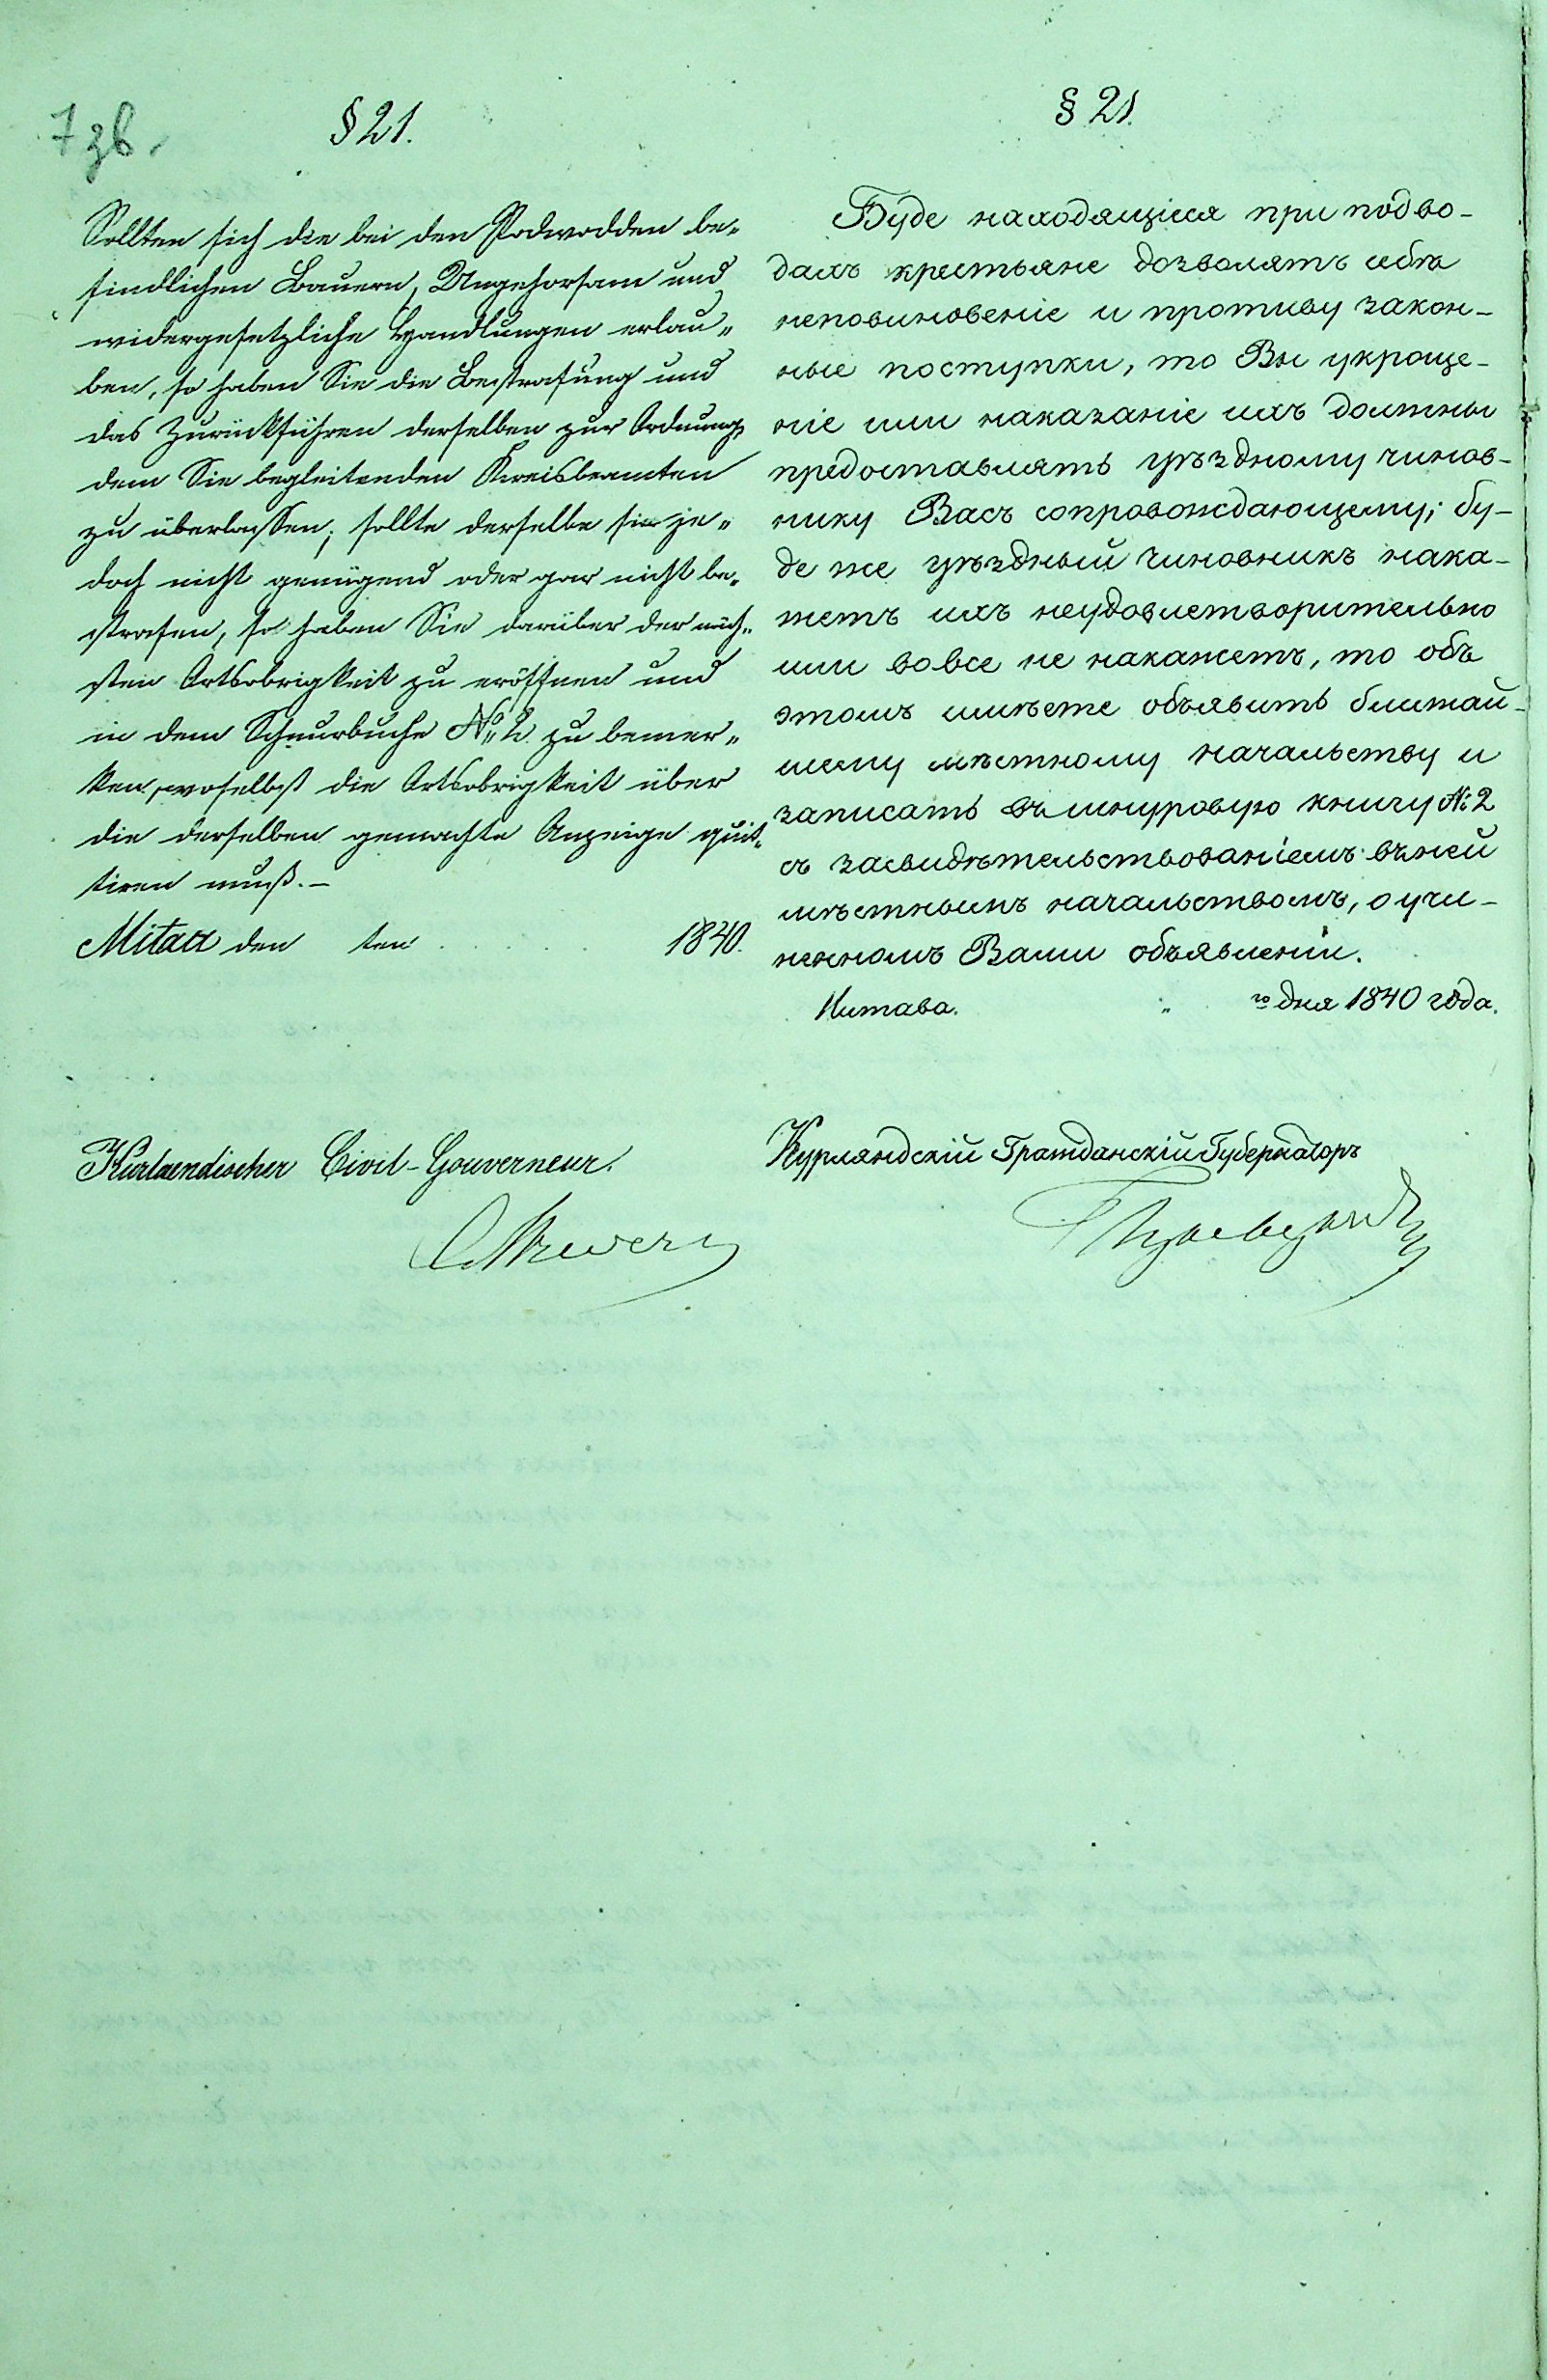 § 21.
Sollten sich die bei den Podwodden be„
findlichen Bauern, Ungehorsam und
widergesetzliche Handlungen erlau„
ben, so haben Sie die Bestrafung und
das Zurückführen derselben zur Ordnung,
dem Sie begleitenden Kreisbeamten
zu überlassen; sollte derselbe sie je„
doch nicht genügend oder gar nicht be„
strafen, so haben Sie darüber der näch„
sten Ortsobrigkeit zu eröffnen und
in dem Schnurbuche № 2. zu bemer„
ken, woselbst die Ortsobrigkeit über
die derselben gemachte Anzeige quit„
tiren muß.—
Mitau den ten 1840.
Kurlaendischer Civil-Gouverneur.
§ 21.
Буде находящіеся при подво-
дахъ крестьяне дозволятъ себѣ
неповиновеніе и противу закон-
ные поступки, то Вы укроще-
ніе или наказаніе ихъ должны
предоставлять уѣздному чинов-
нику Васъ сопровождающему; бу-
де же уѣздный чиновникъ нака-
жетъ ихъ неудовлетворительно
или вовсе не накажетъ, то объ
этомъ имѣете объявить ближай-
шему мѣстному начальству и
записать въ шнуровую книгу № 2
съ засвидѣтельствованіемъ въ ней
мѣстнымъ начальствомъ, о учи-
ненномъ Вами объявленіи.
Митава. „ го дня 1840 года.
Курляндскій Гражданскій Губернаторъ